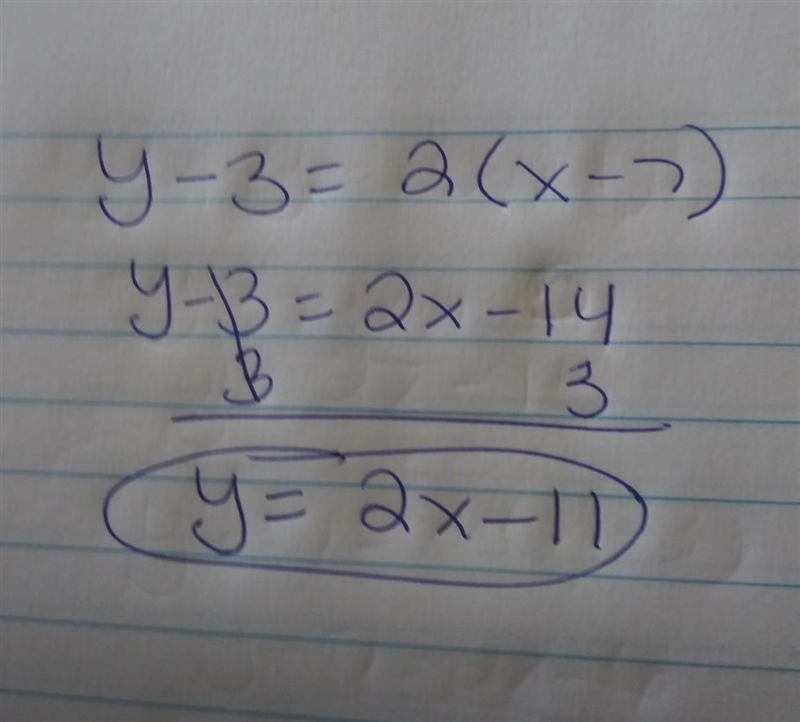 y-3= 2(x-7)
y-3=2x-14
3 3
y= 2x-11